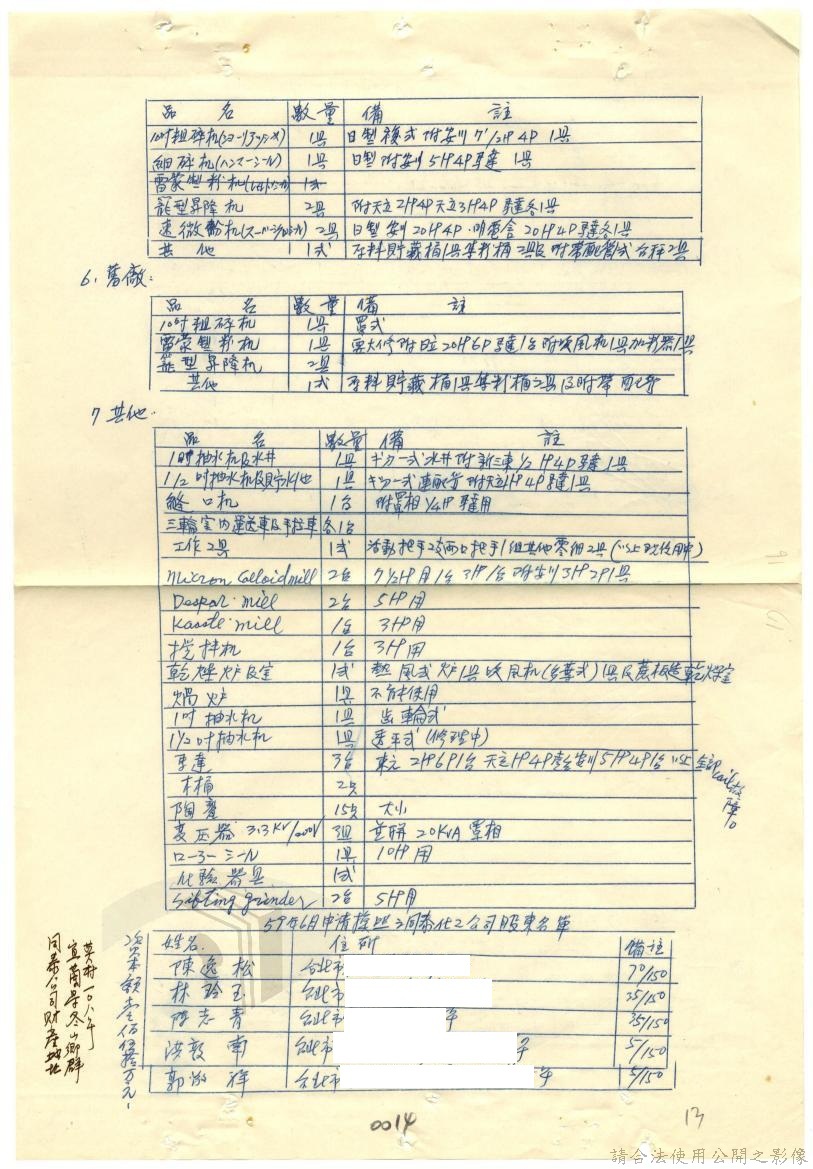 品名 數量 備註
10吋粗碎机 1具 日製複式附安川7 1/2HP4P 1具
細碎机(ハンマーミール) 1具 日製附安川5HP4P馬達1具
雷蒙製粉机 1式
籠型昇降机 2具 附天立2HP4P天立3HP4P馬達各1具
速微粉机 2具 日製安川20HP4P.明電舍20HP4P馬達各1具
其他 1式 原料貯藏桶1具集料桶2具及附帶配管式台秤2具
6. 舊廠：
品名 數量 備註
10吋粗碎机 1具 單式
雷蒙製粉机 1具 要大修附日立20HP6P馬達1台附吹風机1具加料器1具
籠型昇降机 2具
其他 1式 原料貯藏桶1具集料桶2具及附帶配管
7 其他.
品名 數量 備註
1吋抽水机及水井 1具 水井附新三東1/2HP4P馬達1具
1 1/2吋抽水机及貯水池 1具 連配管附天立1HP4P馬達1具
縫口机 1台 附單相1/4HP馬達用
三輪室內運送車及手拉車 各1台
工作工具 1式 活動把手2支兩口把手1組其他零細工具(以上現使用中)
Micron Colloid mill 2台 7 1/2HP用1台3HP1台附安川3HP2P1具
Despar. mill 2台 5HP用
Kasste. mill 1台 3HP用
攪拌机 1台 3HP用
乾燥炉及室 1式 熱風式炉1具吹風机(多葉式)1具及蔗板造乾燥室
焗炉 1具 不能使用
1吋抽水机 1具 齒輪式
1 1/2吋抽水机 1具 透平式(修理中)
馬達 3台 東元2HP6P1台天立1HP4P壹台安川5HP4P1台以上全部coil故障。
木桶 2只
陶甕 15只 大小
変压器 3.3KV/200V 3具 並聯20KVA單相
ローラーミール 1具 10HP用
化驗器具 1式
Sifting grinder 2台 5HP用
59年6月申請換照之同泰化工公司股東名單
姓名. 住所 備註
陳逸松 台北市 70/150
林玲玉 台北市 35/150
陳志青 台北市 35/150
洪敦南 台北市 5/150
郭 祥 台北市 5/150
資本額壹佰伍拾万元.
同泰公司財產地址
宜蘭县冬山鄉群
英村一〇八号
0014
13
請合法使用公開之影像